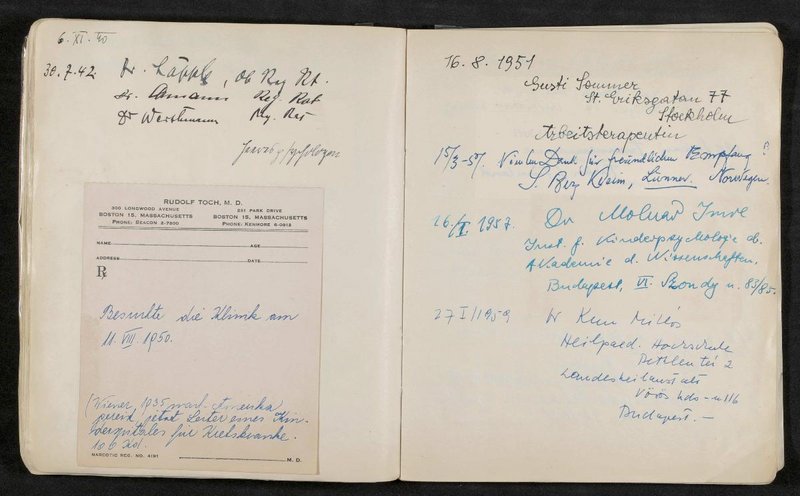 6. XI. 40
30.7.42. Dr. Läpple, Ob Reg Rt.
Dr. Amann Reg. Rat
Dr Werthmann Reg. Rat
RUDOLF TOCH, M. D.
300 LONGWOOD AVENUE 251 PARK DRIVE
BOSTON 15, MASSACHUSETTS BOSTON 15, MASSACHUSETTS
PHONE: BEACON 2-7800 PHONE: KENMORE 6-0912
NAME AGE
ADDRESS DATE
℞
Besuchte die Klinik am
11. VIII. 1950.
(Wiener, 1935 nach Amerika
gereist, jetzt Leiter eines Kin-
derspitales für Krebskranke.
NARCOTIC REG. NO. 4191 M. D.
16. 8. 1951
Gusti Sommer
St. Eriksgatan 77
Stockholm
Arbeitsterapeutin
15/3-57. Vielen Dank für freundlichen Empfang
S. Berg Lunner. Norwegen.
26./I. 1957. Dr Molnár Imre
Inst. f. Kinderpsychologie d.
Akademie d. Wissenschaften,
Budapest, VI. Szondy u. 83/85.
27 I/1959 Dr Kun Miklós
Heilpaed. Hochschule
Bethlen tér 2
Landesheilanstalt
Vörös hds. u 116
Budapest. —